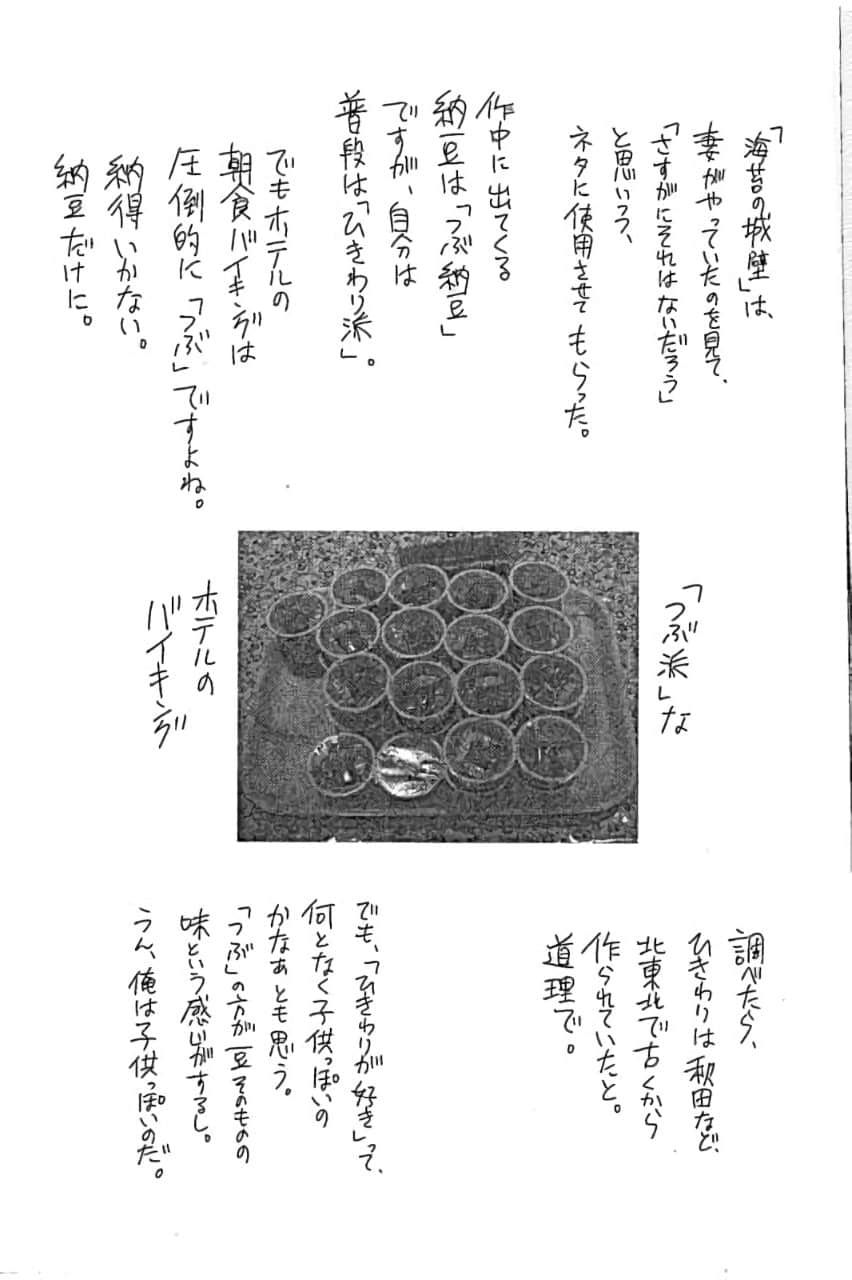 「海苔の城壁」は、
妻がやっていたのを見て、
「さすがにそれはないだろう」
と思いつつ、
ネタに使用させてもらった。
作中に出てくる
納豆は「つぶ納豆」
ですが、自分は
普段は「ひきわり派」。
でもホテルの
朝食バイキングは
圧倒的に「つぶ」ですよね。
納得いかない。
納豆だけに。
「つぶ派」な
ホテルの
バイキング
調べたら、
ひきわりは秋田など、
北東北で古くから
作られていたと。
道理で。
でも、「ひきわりが好き」って、
何となく子供っぽいの
かなぁとも思う。
「つぶ」の方が豆そのものの
味という感じがするし。
うん、俺は子供っぽいのだ。